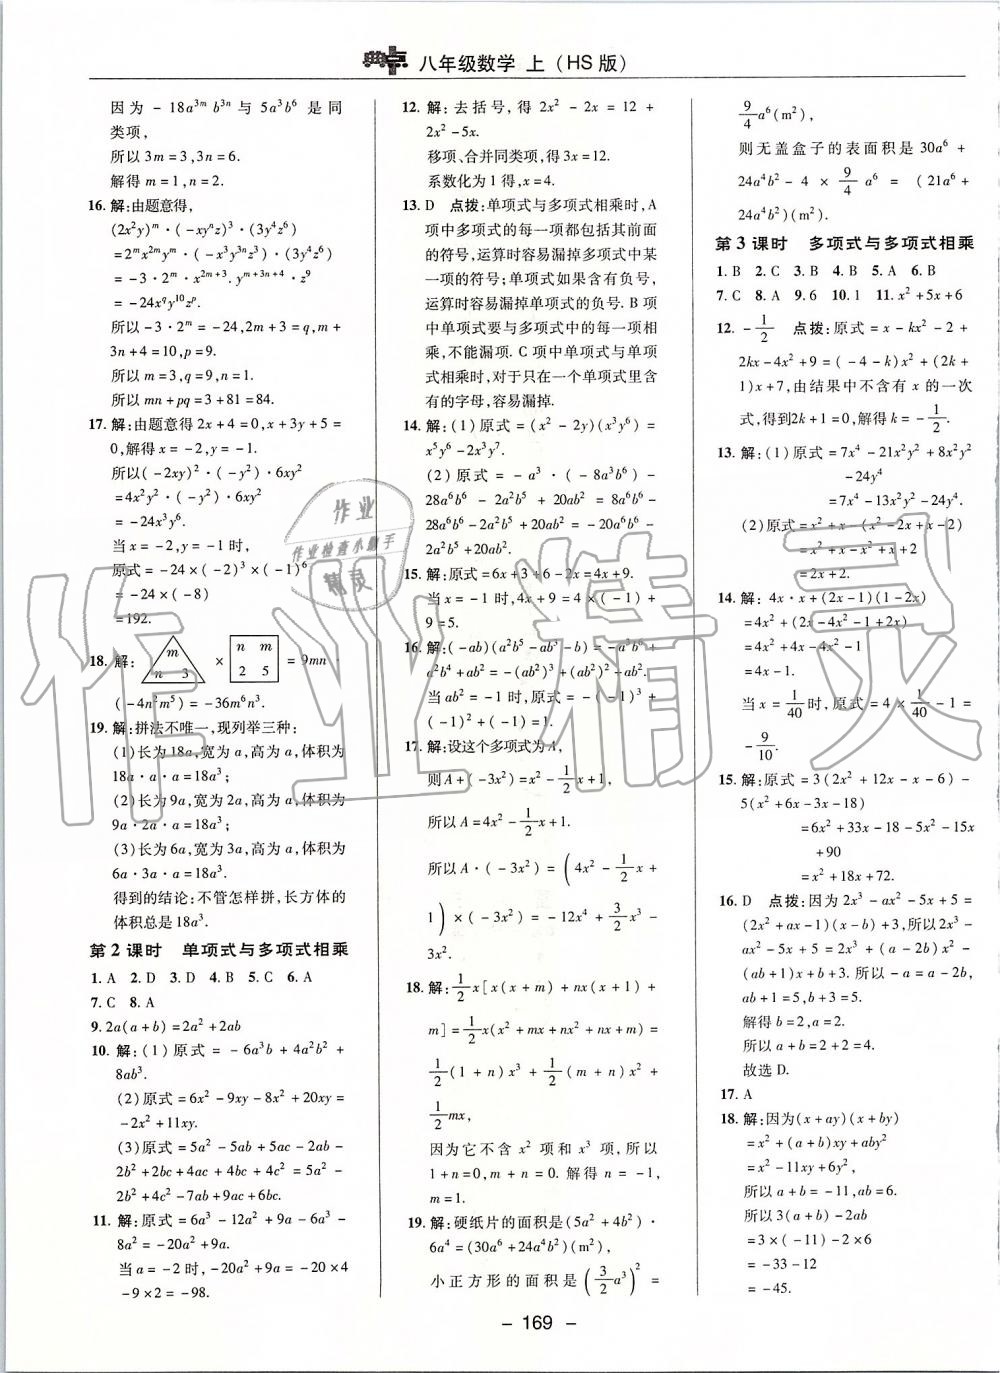 典点 八年级数学 上(HS版)
因为 -18a³ᵐb³ⁿ 与 5a³b⁶ 是同
类项,
所以 3m=3,3n=6.
解得 m=1,n=2.
16. 解:由题意得,
(2x²y)ᵐ·(-xyⁿz)³·(3y⁴z⁶)
=2ᵐx²ᵐyᵐ·(-x³y³ⁿz³)·(3y⁴z⁶)
=-3·2ᵐ·x²ᵐ⁺³·yᵐ⁺³ⁿ⁺⁴·z⁹
=-24x^q y¹⁰z^p.
所以 -3·2ᵐ=-24,2m+3=q,m+
3n+4=10,p=9.
所以 m=3,q=9,n=1.
所以 mn+pq=3+81=84.
17. 解:由题意得 2x+4=0,x+3y+5=
0,解得 x=-2,y=-1.
所以(-2xy)²·(-y²)·6xy²
=4x²y²·(-y²)·6xy²
=-24x³y⁶.
当 x=-2,y=-1 时,
原式=-24×(-2)³×(-1)⁶
=-24×(-8)
=192.
18. 解: m n 3 × n m 2 5 =9mn·
(-4n²m⁵)=-36m⁶n³.
19. 解:拼法不唯一,现列举三种:
(1)长为18a,宽为a,高为a,体积为
18a·a·a=18a³;
(2)长为9a,宽为2a,高为a,体积为
9a·2a·a=18a³;
(3)长为6a,宽为3a,高为a,体积为
6a·3a·a=18a³.
得到的结论:不管怎样拼,长方体的
体积总是18a³.
第2课时 单项式与多项式相乘
1. A 2. D 3. D 4. B 5. C 6. A
7. C 8. A
9. 2a(a+b)=2a²+2ab
10. 解:(1)原式=-6a³b+4a²b²+
8ab³.
(2)原式=6x²-9xy-8x²+20xy=
-2x²+11xy.
(3)原式=5a²-5ab+5ac-2ab-
2b²+2bc+4ac+4bc+4c²=5a²-
2b²+4c²-7ab+9ac+6bc.
11. 解:原式=6a³-12a²+9a-6a³-
8a²=-20a²+9a.
当a=-2时,-20a²+9a=-20×4
-9×2=-98.
12. 解:去括号,得 2x²-2x=12+
2x²-5x.
移项、合并同类项,得 3x=12.
系数化为1得,x=4.
13. D 点拨:单项式与多项式相乘时,A
项中多项式的每一项都包括其前面
的符号,运算时容易漏掉多项式中某
一项的符号;单项式如果含有负号,
运算时容易漏掉单项式的负号. B 项
中单项式要与多项式中的每一项相
乘,不能漏项. C 项中单项式与单项
式相乘时,对于只在一个单项式里含
有的字母,容易漏掉.
14. 解:(1)原式=(x²-2y)(x³y⁶)=
x⁵y⁶-2x³y⁷.
(2)原式=-a³·(-8a³b⁶)-
28a⁶b⁶-2a²b⁵+20ab²=8a⁶b⁶-
28a⁶b⁶-2a²b⁵+20ab²=-20a⁶b⁶-
2a²b⁵+20ab².
15. 解:原式=6x+3+6-2x=4x+9.
当x=-1时,4x+9=4×(-1)+
9=5.
16. 解:(-ab)(a²b⁵-ab³-b)=-a³b⁶+
a²b⁴+ab²=-(ab²)³+(ab²)²+ab².
当ab²=-1时,原式=-(-1)³+
(-1)²+(-1)=1.
17. 解:设这个多项式为A,
则A+(-3x²)=x²-1/2x+1,
所以A=4x²-1/2x+1.
所以A·(-3x²)=(4x²-1/2x+
1)×(-3x²)=-12x⁴+3/2x³-
3x².
18. 解:1/2x[x(x+m)+nx(x+1)+
m]=1/2x(x²+mx+nx²+nx+m)=
1/2(1+n)x³+1/2(m+n)x²+
1/2mx,
因为它不含x²项和x³项,所以
1+n=0,m+n=0. 解得n=-1,
m=1.
19. 解:硬纸片的面积是(5a²+4b²)·
6a⁴=(30a⁶+24a⁴b²)(m²),
小正方形的面积是(3/2a³)²=
9/4a⁶(m²),
则无盖盒子的表面积是30a⁶+
24a⁴b²-4×9/4a⁶=(21a⁶+
24a⁴b²)(m²).
第3课时 多项式与多项式相乘
1. B 2. C 3. B 4. B 5. A 6. B
7. C 8. A 9. 6 10. 1 11. x²+5x+6
12. -1/2 点拨:原式=x-kx²-2+
2kx-4x²+9=(-4-k)x²+(2k+
1)x+7,由结果中不含有x的一次
式,得到2k+1=0,解得k=-1/2.
13. 解:(1)原式=7x⁴-21x²y²+8x²y²
-24y⁴
=7x⁴-13x²y²-24y⁴.
(2)原式=x²+x-(x²-2x+x-2)
=x²+x-x²+x+2
=2x+2.
14. 解:4x·x+(2x-1)(1-2x)
=4x²+(2x-4x²-1+2x)
=4x²+4x-4x²-1
=4x-1.
当x=1/40时,原式=4×1/40-1=
-9/10.
15. 解:原式=3(2x²+12x-x-6)-
5(x²+6x-3x-18)
=6x²+33x-18-5x²-15x
+90
=x²+18x+72.
16. D 点拨:因为2x³-ax²-5x+5=
(2x²+ax-1)(x-b)+3,所以2x³-
ax²-5x+5=2x³+(a-2b)x²-
(ab+1)x+b+3. 所以-a=a-2b,
ab+1=5,b+3=5.
解得b=2,a=2.
所以a+b=2+2=4.
故选D.
17. A
18. 解:因为(x+ay)(x+by)
=x²+(a+b)xy+aby²
=x²-11xy+6y²,
所以a+b=-11,ab=6.
所以3(a+b)-2ab
=3×(-11)-2×6
=-33-12
=-45.
- 169 -
作业
作业检查小助手
精灵
作业精灵